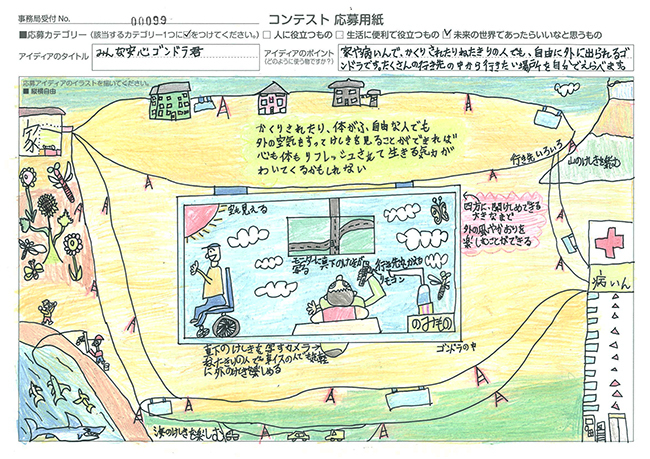 事務局受付 No. 00099
コンテスト 応募用紙
■応募カテゴリー (該当するカテゴリー1つに☑をつけてください。) □ 人に役立つもの □ 生活に便利で役立つもの ☑ 未来の世界であったらいいなと思うもの
アイディアのタイトル
みんな安心ゴンドラ君
アイディアのポイント
(どのように使う物ですか?)
家や病いんで、かくりされたりねたきりの人でも、自由に外に出られるゴ
ンドラです。たくさんの行き先の中から行きたい場所を自分でえらべます。
応募アイディアのイラストを描いてください。
■ 縦横自由
家
かくりされたり、体がふ自由な人でも
外の空気をすってけしきを見ることができれば
心も体もリフレッシュされて生きる気力が
わいてくるかもしれない
行き先いろいろ
山のけしきを楽む
空も見える
四方に開けしめできる
大きなまど
外の風やかおりを
楽しむことができる
モニターに真下のけしきが
行き先
リモコン
のみもの
病いん
真下のけしきを写すカメラ
ねたきりの人でも車イスの人でも
に外のけしきを楽しめる
ゴンドラの中
海のけしきも楽しむ